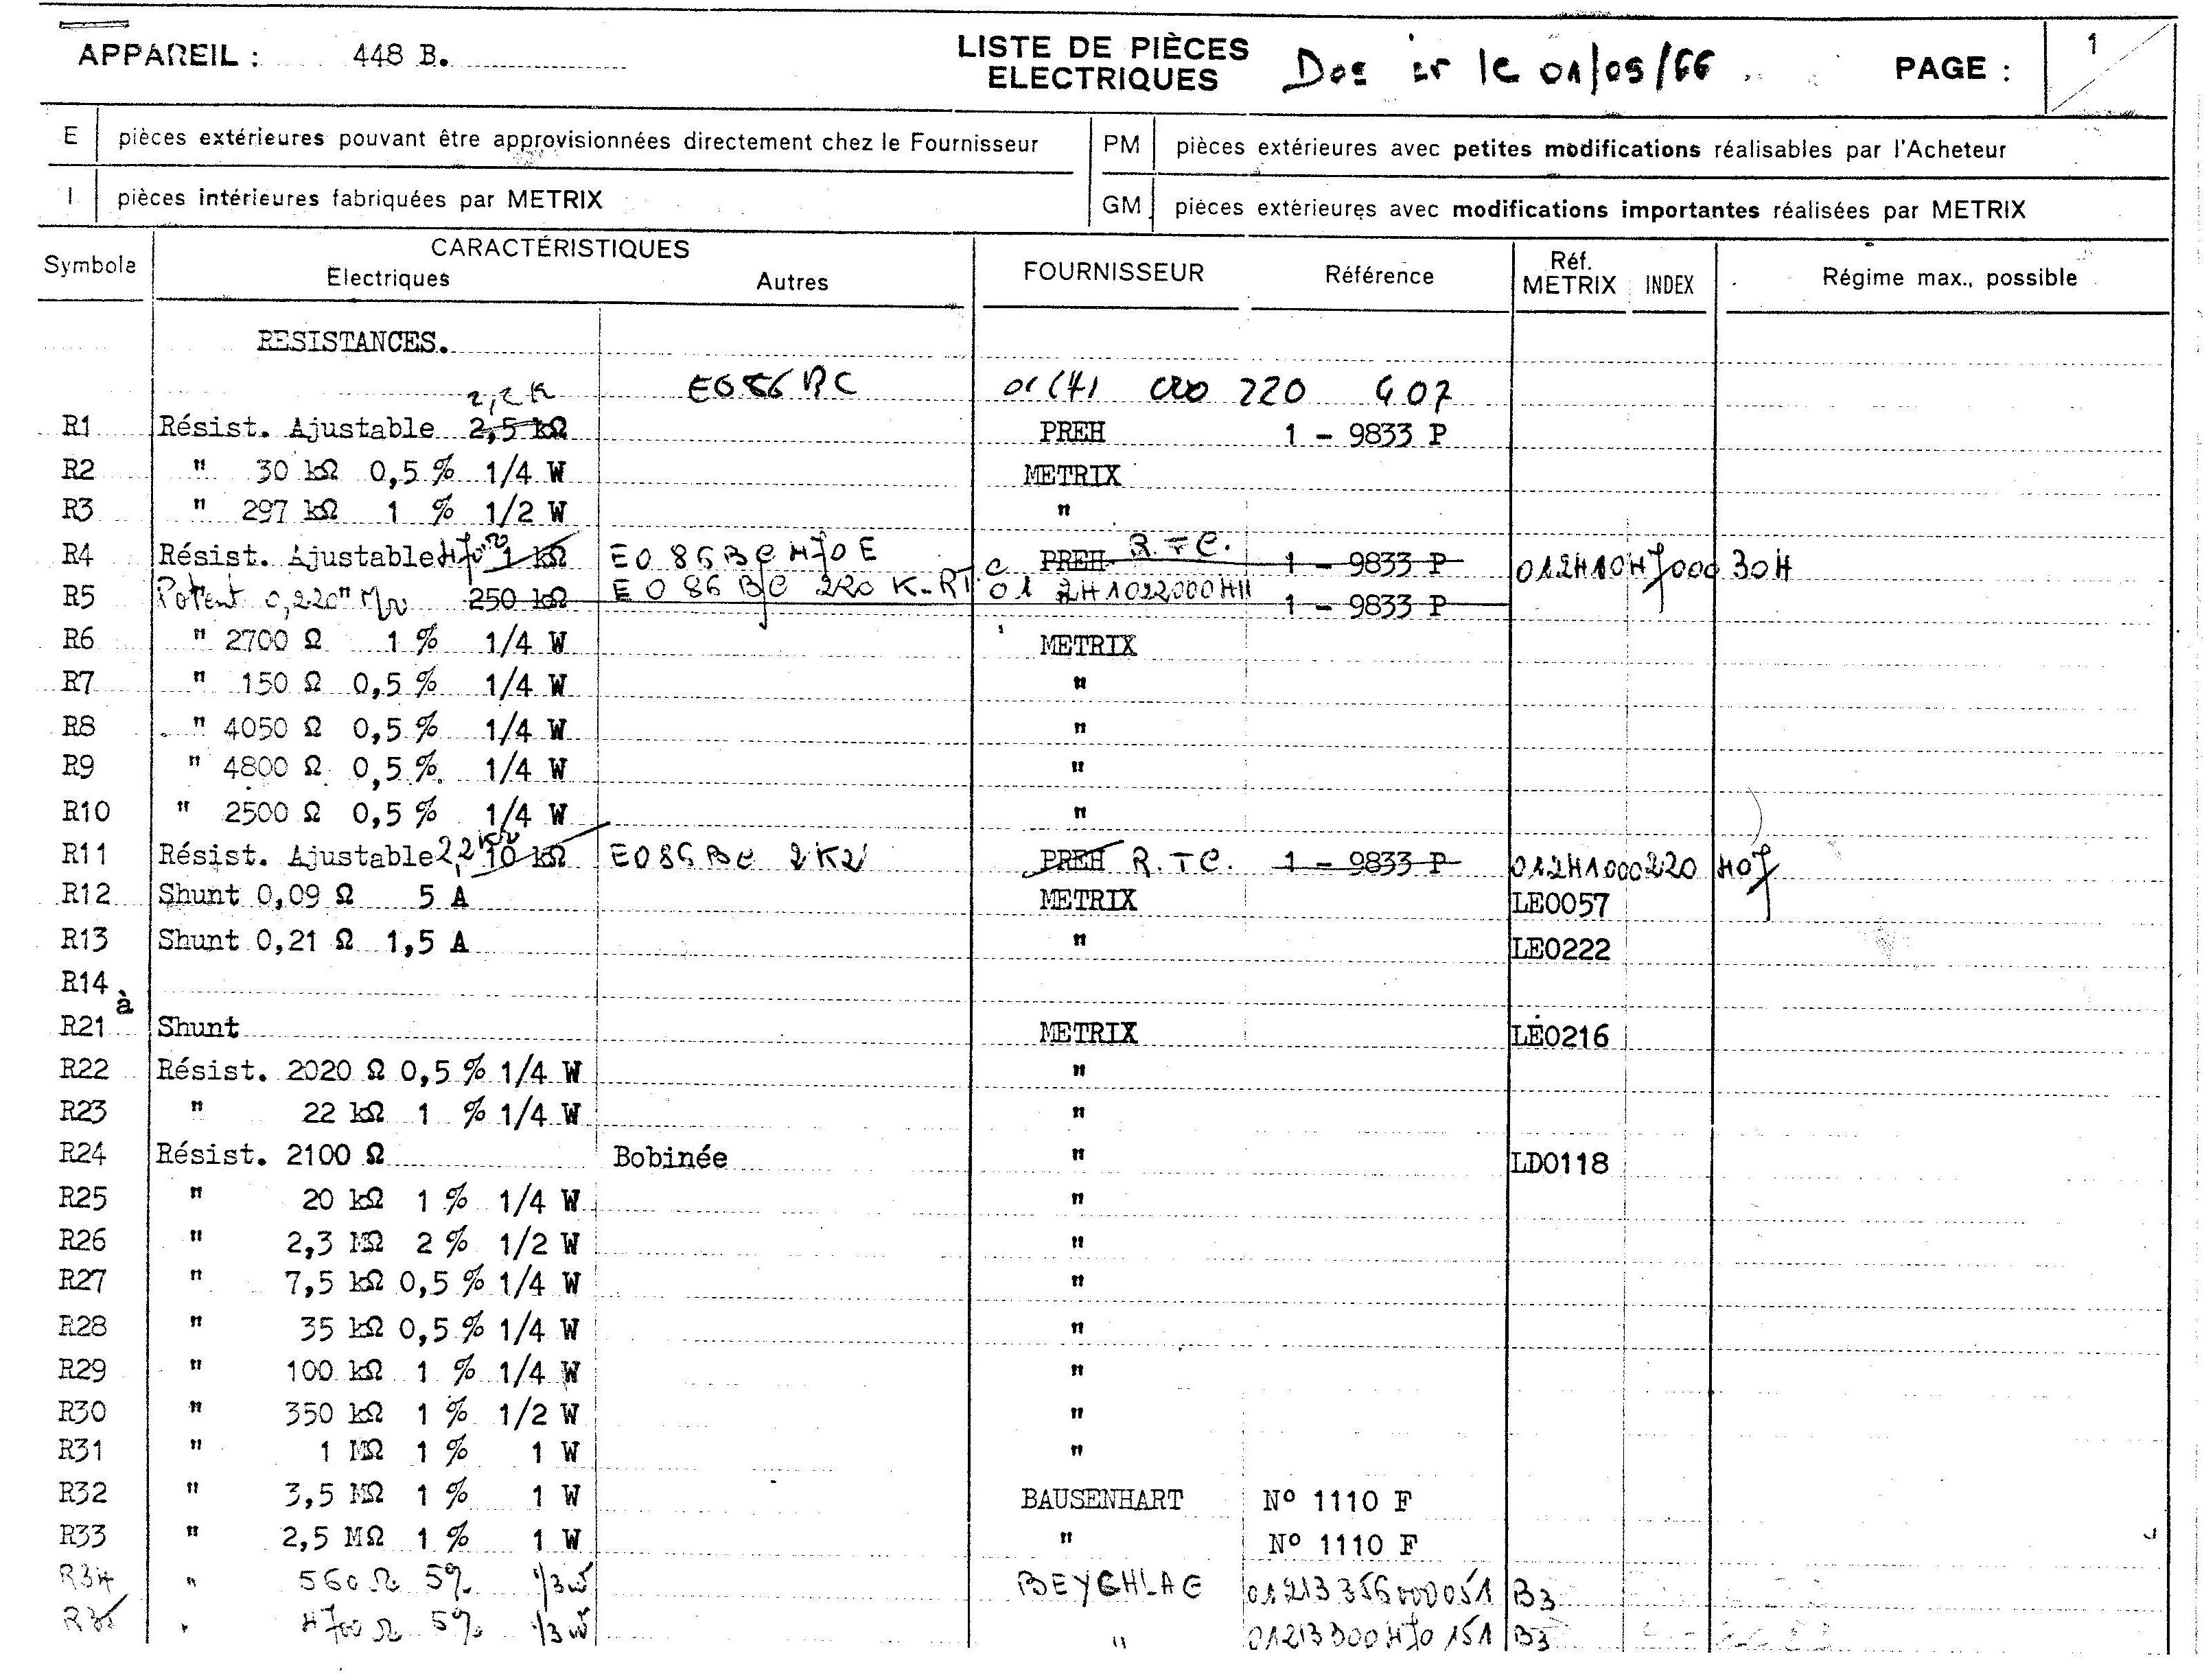 APPAREIL : 448 B. LISTE DE PIÈCES ELECTRIQUES le 01/09/66 PAGE : 1
E pièces extérieures pouvant être approvisionnées directement chez le Fournisseur PM pièces extérieures avec petites modifications réalisables par l'Acheteur
I pièces intérieures fabriquées par METRIX GM pièces extérieures avec modifications importantes réalisées par METRIX
Symbole CARACTÉRISTIQUES Electriques Autres FOURNISSEUR Référence Réf. METRIX INDEX Régime max., possible
RESISTANCES.
2,2 K E086 BC 000 220 407
R1 Résist. Ajustable 2,5 kΩ PREH 1 - 9833 P
R2 " 30 kΩ 0,5 % 1/4 W METRIX
R3 " 297 kΩ 1 % 1/2 W "
R4 Résist. Ajustable 470 Ω 1 kΩ E086BC 470E PREH R.T.C. 1 - 9833 P 01241047000 304
R5 Potent 0,220 MΩ 250 kΩ E086BC 220K 1 - 9833 P
R6 " 2700 Ω 1 % 1/4 W METRIX
R7 " 150 Ω 0,5 % 1/4 W "
R8 " 4050 Ω 0,5 % 1/4 W "
R9 " 4800 Ω 0,5 % 1/4 W "
R10 " 2500 Ω 0,5 % 1/4 W "
R11 Résist. Ajustable 2,2 kΩ 10 kΩ E086BC 2K2 PREH R.T.C. 1 - 9833 P 01241000220 407
R12 Shunt 0,09 Ω 5 A METRIX LE0057
R13 Shunt 0,21 Ω 1,5 A " LE0222
R14
à
R21 Shunt METRIX LE0216
R22 Résist. 2020 Ω 0,5 % 1/4 W "
R23 " 22 kΩ 1 % 1/4 W "
R24 Résist. 2100 Ω Bobinée " LD0118
R25 " 20 kΩ 1 % 1/4 W "
R26 " 2,3 MΩ 2 % 1/2 W "
R27 " 7,5 kΩ 0,5 % 1/4 W "
R28 " 35 kΩ 0,5 % 1/4 W "
R29 " 100 kΩ 1 % 1/4 W "
R30 " 350 kΩ 1 % 1/2 W "
R31 " 1 MΩ 1 % 1 W "
R32 " 3,5 MΩ 1 % 1 W BAUSENHART Nº 1110 F
R33 " 2,5 MΩ 1 % 1 W " Nº 1110 F
R34 " 560 Ω 5% 1/3 W BEYGHLAG 01213356000051 B3
R35 " 4700 Ω 5% 1/3 W " 01213300470151 B3